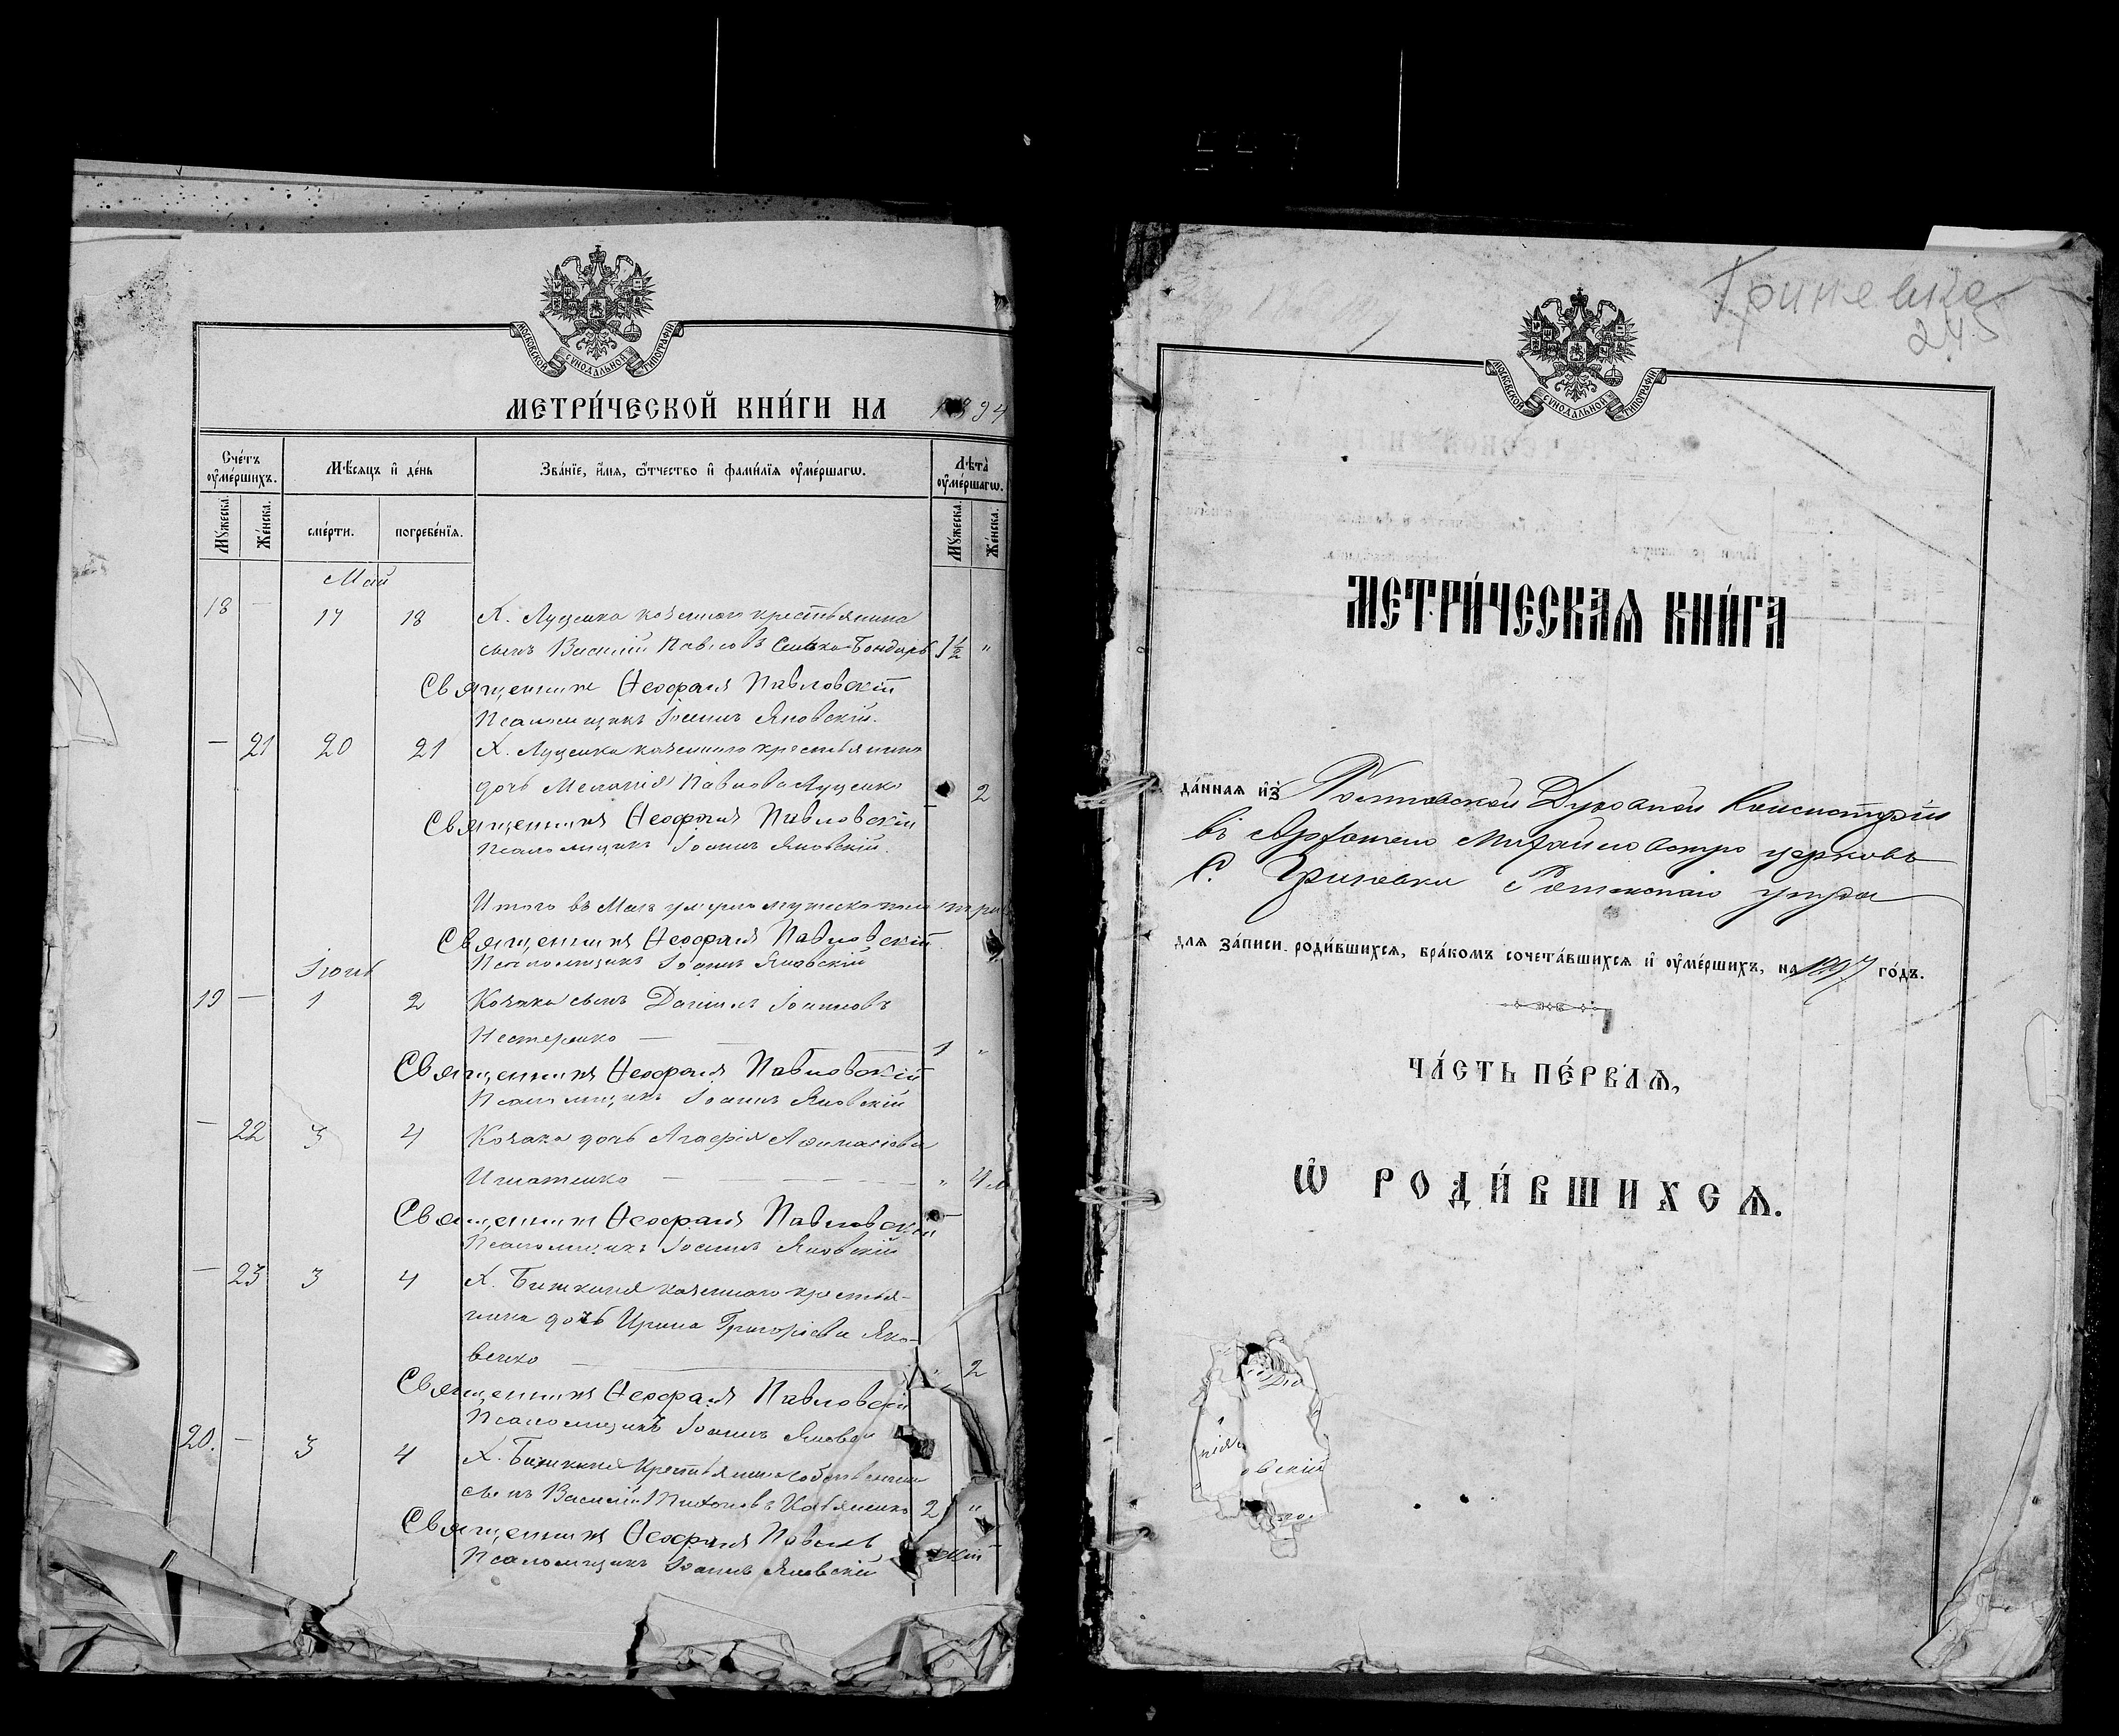 МОСКОВСКОЙ СУНОДАЛЬНОЙ ТИПОГРАФІИ
МЕТРИ́ЧЕСКОЙ КНИ́ГИ НА 1894
Сче́тъ ᲂу҆ме́ршихъ.
Мѣ́сяцъ и҆ де́нь
Зва́нїе, и҆́мя, ѻ҆́тчество и҆ фами́лїя ᲂу҆ме́ршагѡ.
Лѣта̀ ᲂу҆ме́ршагѡ.
Мꙋ́жеска.
Же́нска.
сме́рти.
погребе́нїя.
Мꙋ́жеска.
Же́нска.
Май
18 — 17 18 Х. Луценка казеннаго крестьянина
сынъ Василій Павловъ Сенько-Бондарь 1½ "
Священникъ Ѳеофанъ Павловскій
Псаломщикъ Іоаннъ Яновскій.
— 21 20 21 Х. Луценка казеннаго крестьянина
дочь Меланія Павлова Луценко 2
Священникъ Ѳеофанъ Павловскій
Псаломщикъ Іоаннъ Яновскій.
Итого въ Маѣ умерло мужеска пола три
Священникъ Ѳеофанъ Павловскій
Псаломщикъ Іоаннъ Яновскій
Іюнь
19 — 1 2 Козака сынъ Даніилъ Іоанновъ
Нестеренко — 1 "
Священникъ Ѳеофанъ Павловскій
Псаломщикъ Іоаннъ Яновскій
— 22 3 4 Козака дочь Агафія Аѳанасіева
Игнатенко — " 4 м
Священникъ Ѳеофанъ Павловскій
Псаломщикъ Іоаннъ Яновскій
— 23 3 4 Х. Биткиня казеннаго крестья-
нина дочь Ирина Григоріева Яко-
венко — " 2
Священникъ Ѳеофанъ Павловскій
Псаломщикъ Іоаннъ Яновскій
20. — 3 4 Х. Биткиня Крестьянина собственника
сынъ Василій 2 "
Священникъ Ѳеофанъ Павловскій
Псаломщикъ Іоаннъ Яновскій
557
Гриневка
245
МОСКОВСКОЙ СУНОДАЛЬНОЙ ТИПОГРАФІИ
МЕТРИ́ЧЕСКАЯ КНИ́ГА
да́нная и҆з̾ Полтавской Духовной Консисторіи
въ Архангело Михайловскую церковь
с. Гриневки Роменскаго уѣзда
для за́писи роди́вшихся, бра́комъ сочета́вшихся и҆ ᲂу҆ме́ршихъ, на 1897 го́дъ.
ЧА́СТЬ ПЕ́РВАЯ,
Ѡ҆ РОДИ́ВШИХСЯ.